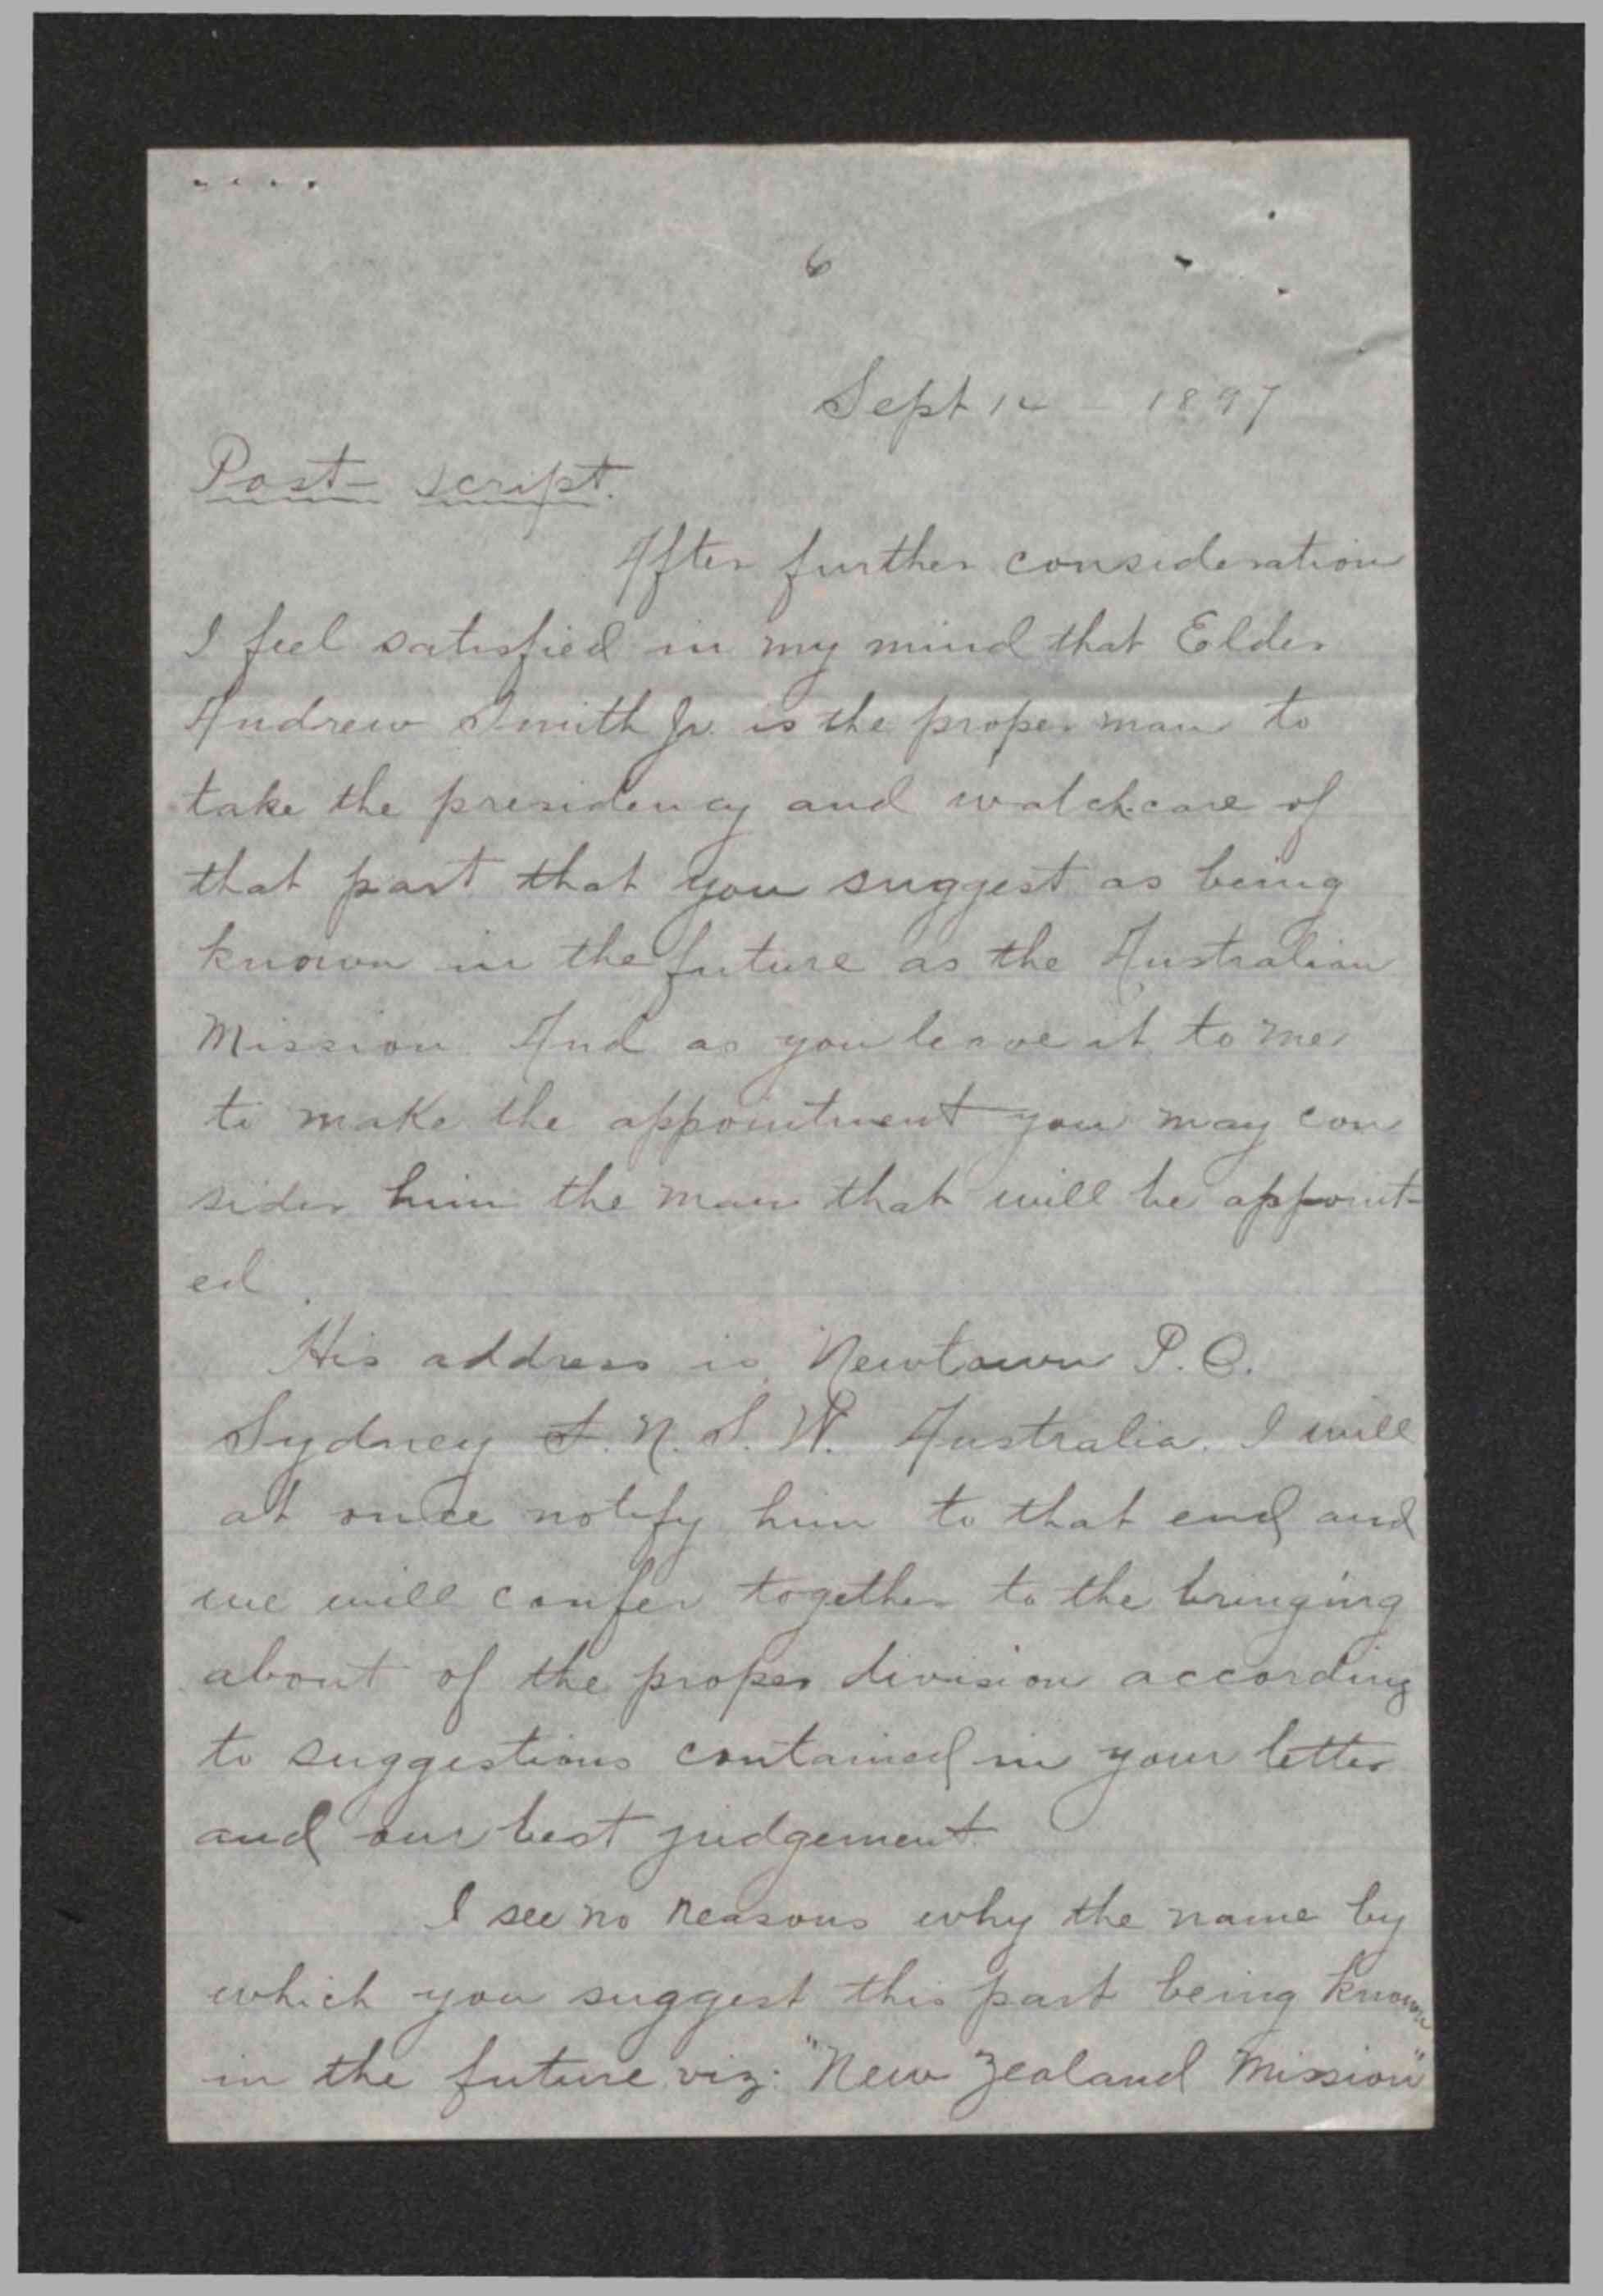 6
Sept 14 - 1897
Post-script.
After further consideration
I feel satisfied in my mind that Elder
Andrew Smith Jr. is the proper man to
take the presidency and watchcare of
that part that you suggest as being
known in the future as the Australian
Mission. And as you leave it to me
to make the appointment you may con
sider him the man that will be appoint-
ed.
His address is Newtown P.O.
Sydney S. N. S. W. Australia. I will
at once notify him to that end and
we will confer together to the bringing
about of the proper division according
to suggestions contained in your letter
and our best judgement.
I see no reasons why the name by
which you suggest this part being known
in the future viz: "New Zealand Mission"